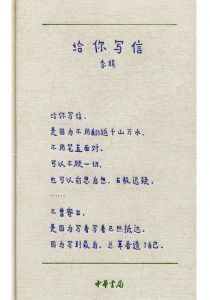 给你写信
李娟
给你写信，
是因为不用翻越千山万水，
不用笔直面对，
可以不顾一切，
也可以前思后想，右板迟疑，
……
不曾寄出，
是因为写着写着已然抵达，
因为写到最后，总算看透自己。
中华书局